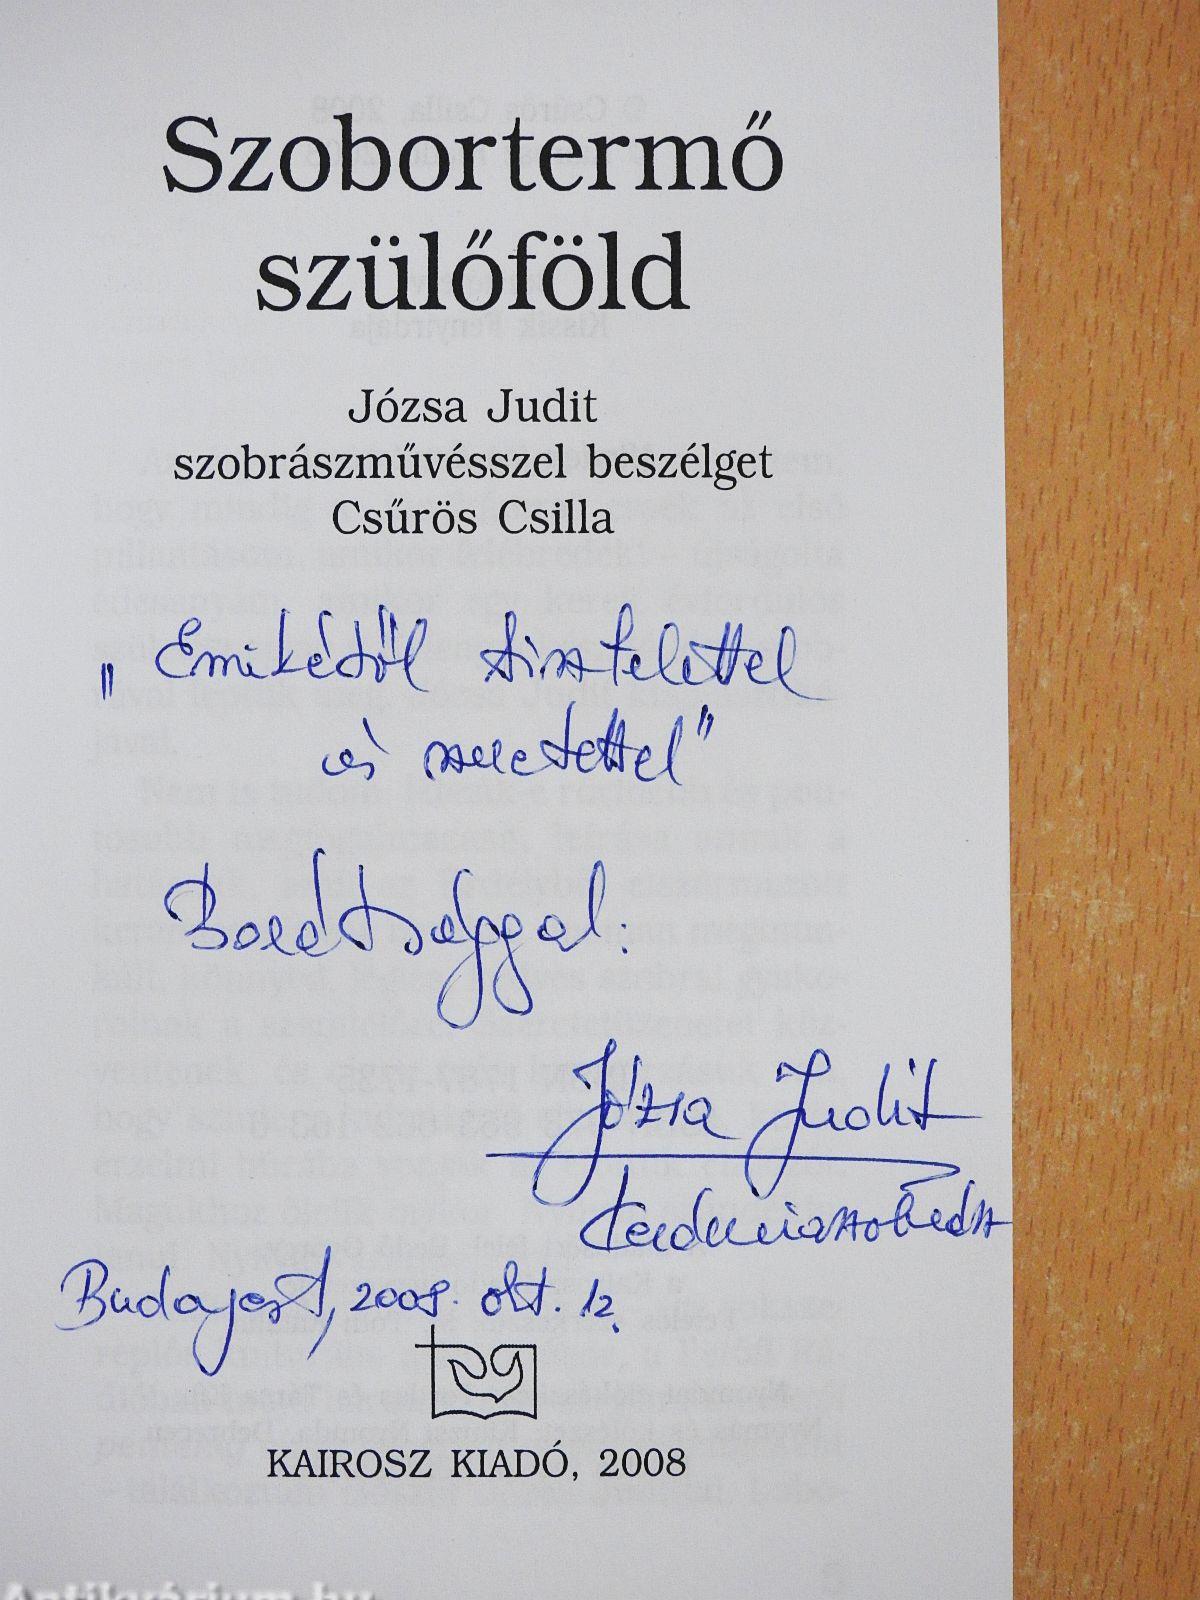 Szobortermő
szülőföld
Józsa Judit
szobrászművésszel beszélget
Csűrös Csilla
„Emikétől tisztelettel
és szeretettel”
Barátsággal:
Józsa Judit
kerámiaszobrász
Budapest, 2008. okt. 12.
KAIROSZ KIADÓ, 2008
Antikvárium.hu